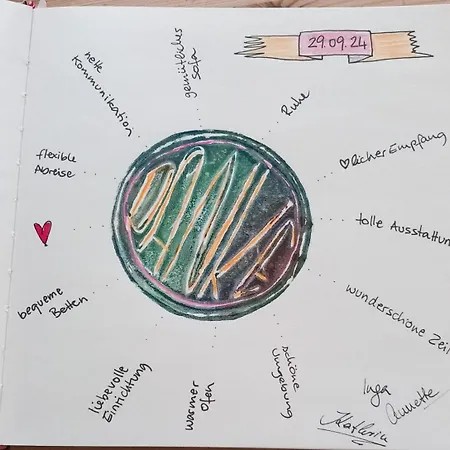 29.09.24
gemütliches
Sofa
Ruhe
♡licher Empfang
tolle Ausstattun
wunderschöne Zeit
schöne
Umgebung
warmer
Ofen
liebevolle
Einrichtung
bequeme
Betten
flexible
Abreise
nette
Kommunikation
Inga
Annette
Kathrin